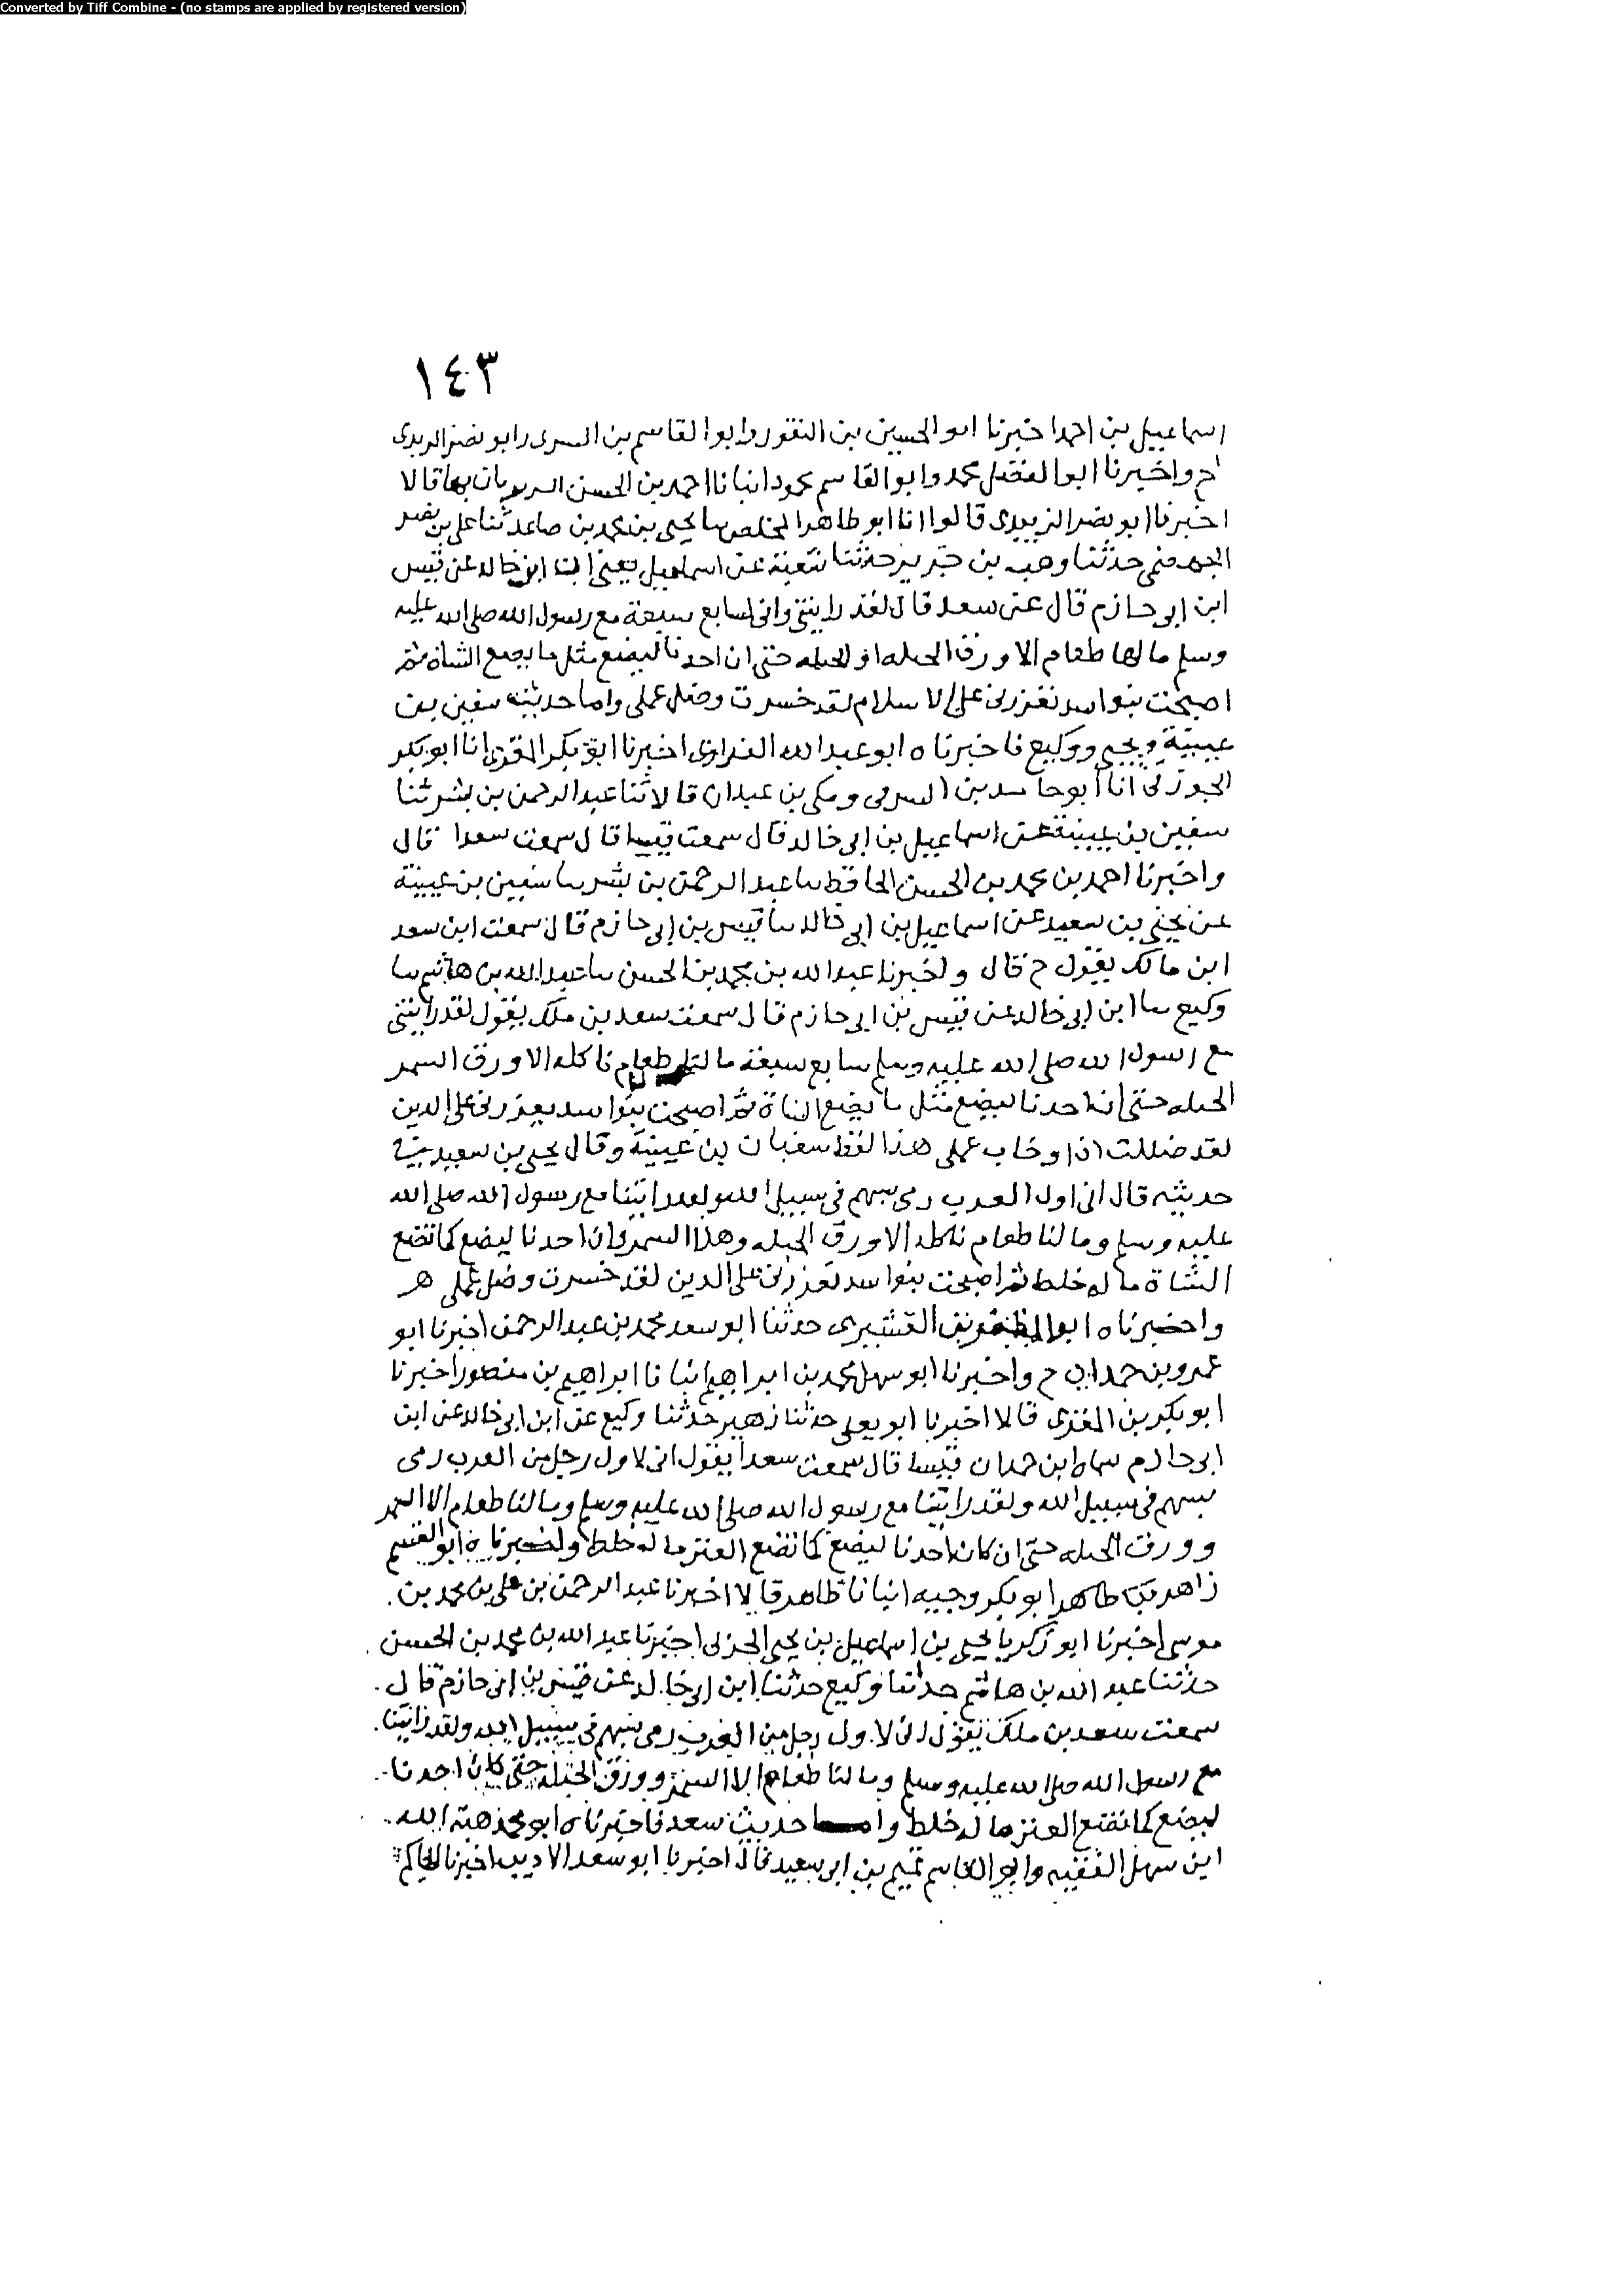 Converted by Tiff Combine - (no stamps are applied by registered version)
١٤٣
اسماعيل بن احمد اخبرنا ابو الحسين بن النقور وابو القاسم بن البسرى وابو نصر الزينبى
ح واخبرنا ابو الفضل محمد وابو القاسم محمود انبانا احمد بن الحسن بها قالا
اخبرنا ابو نصر الزينبى قالوا انا ابو طاهر المخلص سا يحيى بن محمد بن صاعد ثنا على بن نصر
الجهضمى حدثنا وهب بن جرير حدثنا شعبة عن اسماعيل يعنى ابن ابى خالد عن قيس
ابن ابى حازم قال عن سعد قال لقد رايتنى وانى لسابع سبعة مع رسول الله صلى الله عليه
وسلم مالها طعام الا ورق الحبله او الحبله حتى ان احدنا ليضع مثل ما يضع الشاة ثم
اصبحت بنوا اسد تعزرنى على الاسلام لقد خسرت وضل عملى واما حديثه سفين بن
عيينة ويحيى ووكيع فاخبرناه ابو عبد الله الفراوى اخبرنا ابو بكر انا ابو بكر
الجوزقى انا ابو حامد بن الشرقى ومكى بن عبدان قالا ثنا عبد الرحمن بن بشر ثنا
سفين بن عيينة عن اسماعيل بن ابى خالد قال سمعت قيسا قال سمعت سعدا قال
واخبرنا احمد بن محمد بن الحسن الحافظ سا عبد الرحمن بن بشر سا سفين بن عيينة
عن يحيى بن سعيد عن اسماعيل بن ابى خالد سا قيس بن ابى حازم قال سمعت ابن سعد
ابن مالك يقول ح قال واخبرنا عبد الله بن محمد بن الحسن سا عبد الله بن هاشم سا
وكيع سا ابن ابى خالد عن قيس بن ابى حازم قال سمعت سعد بن ملك يقول لقد رايتنى
مع رسول الله صلى الله عليه وسلم سابع سبعة مالنا طعام ناكله الا ورق السمر
الحبله حتى ان احدنا ليضع مثل ما يضع الشاة ثم اصبحت بنوا اسد يعزرنى على الدين
لقد ضللت اذا وخاب عملى هذا لفظ سفيان بن عيينة وقال يحيى بن سعيد فى
حديثه قال انى اول العرب رمى بسهم فى سبيل الله ولقد راتينا مع رسول الله صلى الله
عليه وسلم ومالنا طعام ناكله الا ورق الحبله وهذا السمر وان احدنا ليضع كما تضع
الشاة ماله خلط ثم اصبحت بنوا اسد تعزرنى على الدين لقد خسرت وضل عملى هـ
واخبرناه ابو المظفر بن القشيرى حدثنا ابو سعد محمد بن عبد الرحمن اخبرنا ابو
عمرو بن حمدان ح واخبرنا ابو سهل محمد بن ابراهيم انبانا ابراهيم بن منصور اخبرنا
ابو بكر بن المقرى قالا اخبرنا ابو يعلى حدثنا زهير حدثنا وكيع عن ابن ابى خالد عن ابن
ابى حازم سماه ابن حمدان قيسا قال سمعت سعدا يقول انى لاول رجل من العرب رمى
بسهم فى سبيل الله ولقد راتينا مع رسول الله صلى الله عليه وسلم ومالنا طعام الا السمر
وورق الحبله حتى ان كان احدنا ليضع كما تضع العنز ماله خلط واخبرناه ابو القسم
زاهد بن طاهر ابو بكر وجيه انبانا طاهر قالا اخبرنا عبد الرحمن بن على بن محمد بن
موسى اخبرنا ابو زكريا يحيى بن اسماعيل بن يحيى الحربى اخبرنا عبد الله بن محمد بن الحسن
حدثنا عبد الله بن هاشم حدثنا وكيع حدثنا ابن ابى خالد عن قيس بن ابى حازم قال
سمعت سعد بن ملك يقول انى لاول رجل من العرب رمى بسهم فى سبيل الله ولقد راتينا
مع رسول الله صلى الله عليه وسلم ومالنا طعام الا السمر وورق الحبله حتى كان احدنا
ليضع كما تضع العنز ماله خلط واما حديث سعد فاخبرناه ابو محمد هبة الله
ابن سهل الفقيه وابو القاسم تميم بن ابى سعيد قالا اخبرنا ابو سعد الاديب اخبرنا الحاكم